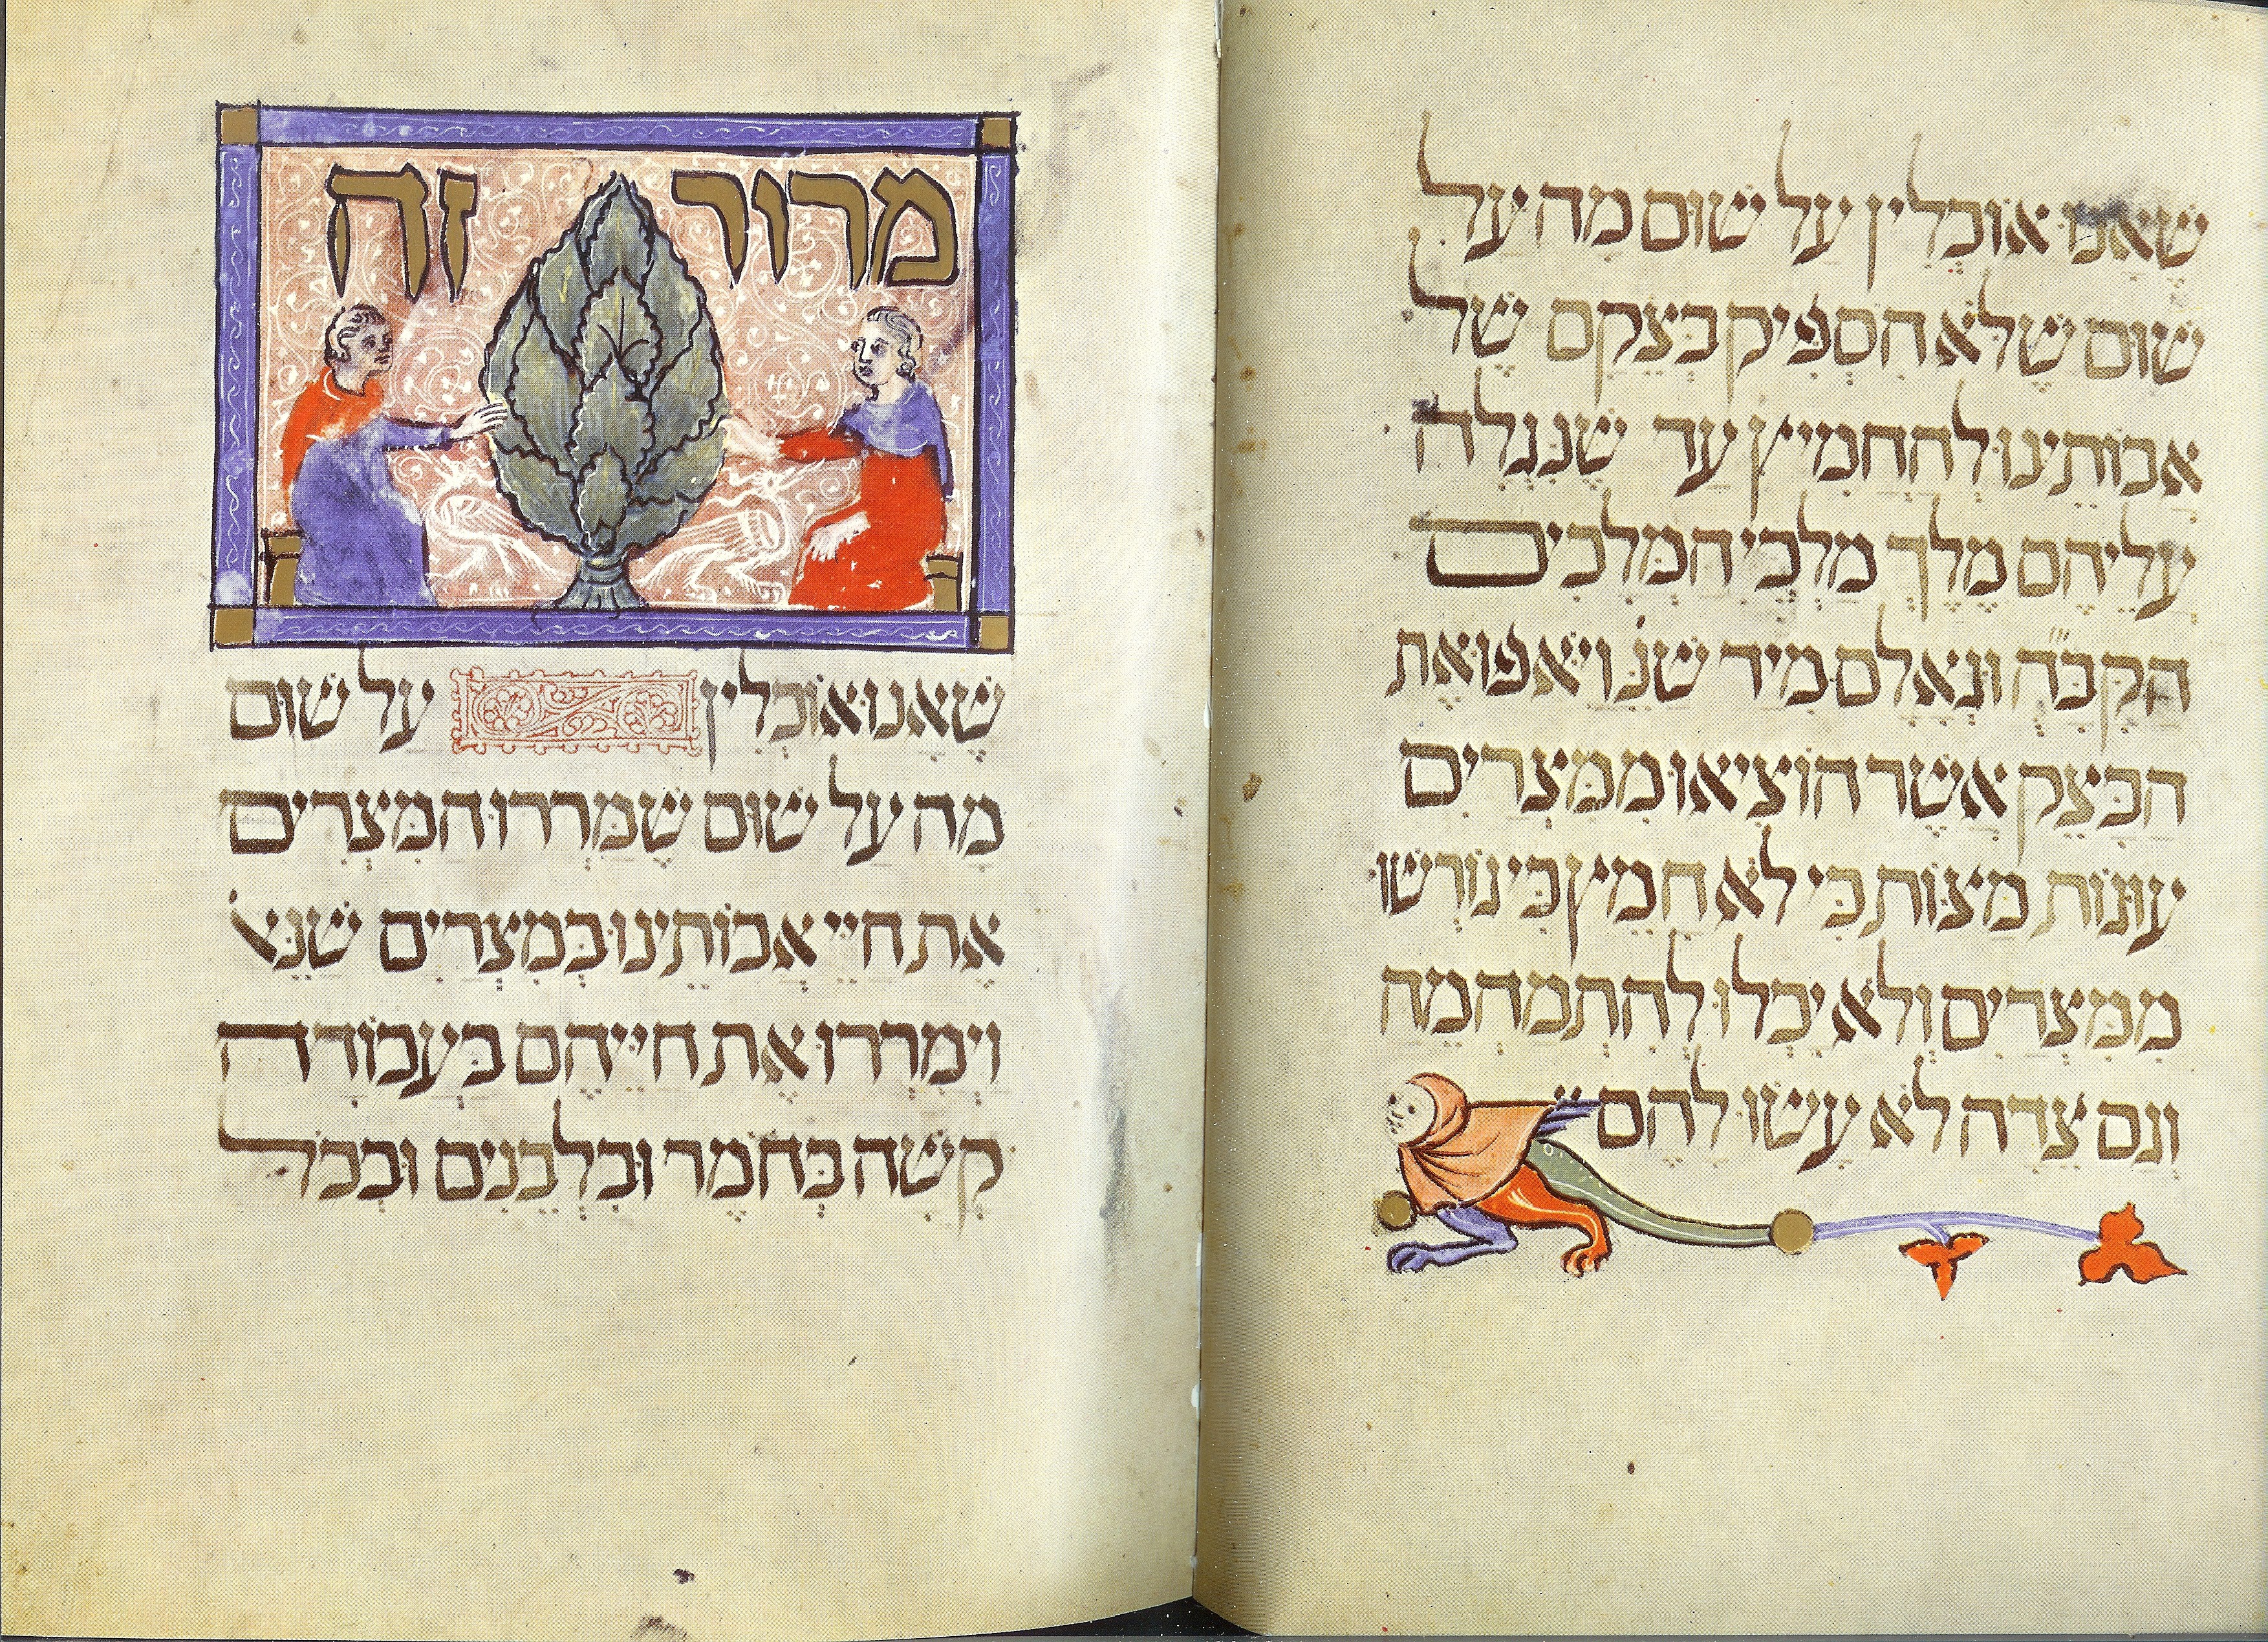 שֶׁאָנוּ אוֹכְלִין עַל שׁוּם מָה עַל
שׁוּם שֶׁלֹּא הִסְפִּיק בְּצֵקָם שֶׁל
אֲבוֹתֵינוּ לְהַחֲמִיץ עַד שֶׁנִּגְלָה
עֲלֵיהֶם מֶלֶךְ מַלְכֵי הַמְּלָכִים
הַקָּבָּ״ה וּגְאָלָם מִיַּד שֶׁנֶּ׳ וַיֹּאפוּ אֶת
הַבָּצֵק אֲשֶׁר הוֹצִיאוּ מִמִּצְרַיִם
עוּגוֹת מַצּוֹת כִּי לֹא חָמֵץ כִּי גוֹרְשׁוּ
מִמִּצְרַיִם וְלֹא יָכְלוּ לְהִתְמַהְמֵהַּ
וְגַם צֵדָה לֹא עָשׂוּ לָהֶם
מרור זה
שֶׁאָנוּ אוֹכְלִין עַל שׁוּם
מָה עַל שׁוּם שֶׁמֵּרְרוּ הַמִּצְרִים
אֶת חַיֵּי אֲבוֹתֵינוּ בְּמִצְרַיִם שֶׁנֶּאֱ׳
וַיְמָרְרוּ אֶת חַיֵּיהֶם בַּעֲבוֹדָה
קָשָׁה בְּחֹמֶר וּבִלְבֵנִים וּבְכֹל